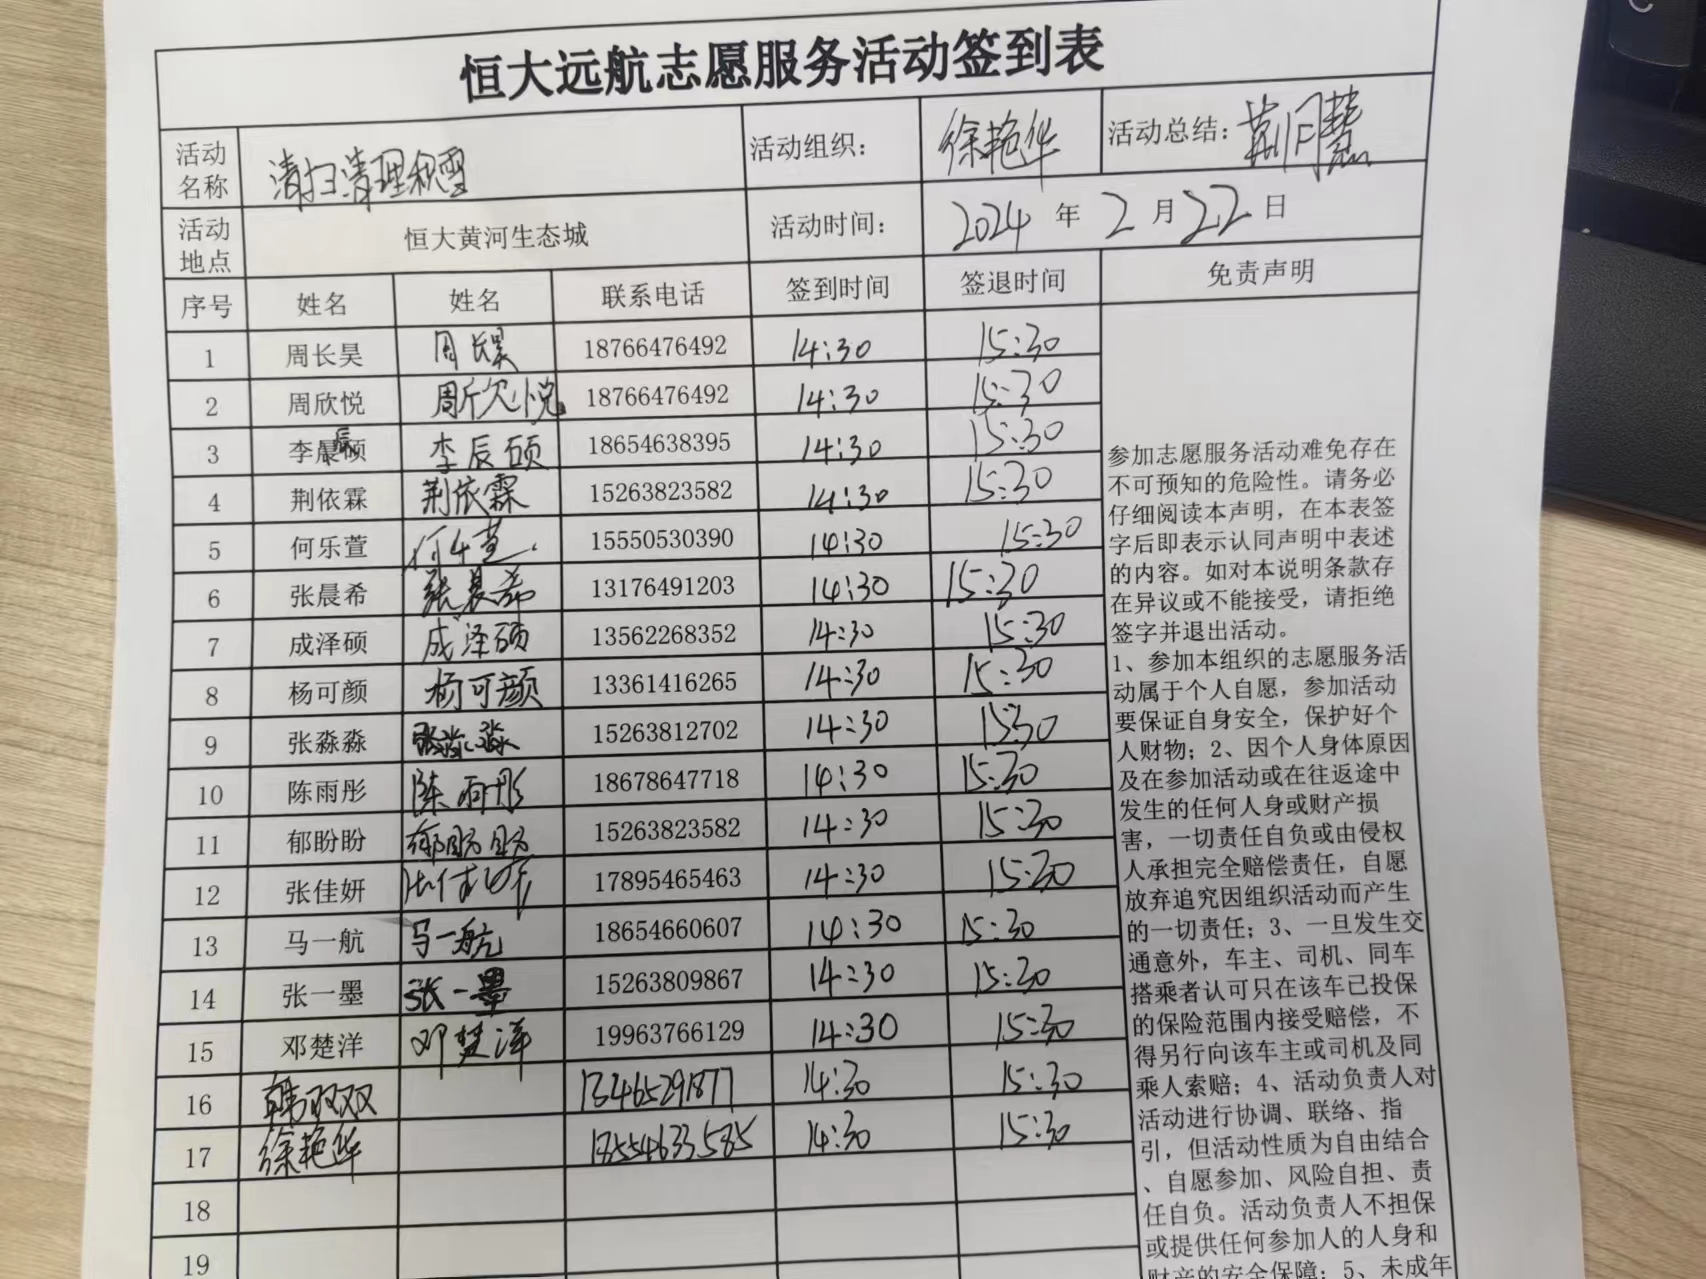 恒大远航志愿服务活动签到表
活动名称 清扫清理积雪 活动组织： 徐艳华 活动总结： 荆月慧
活动地点 恒大黄河生态城 活动时间： 2024 年 2 月 22 日
序号 姓名 姓名 联系电话 签到时间 签退时间 免责声明
1 周长昊 周长昊 18766476492 14:30 15:30
2 周欣悦 周欣悦 18766476492 14:30 15:30
3 李辰硕 李辰硕 18654638395 14:30 15:30
4 荆依霖 荆依霖 15263823582 14:30 15:30
5 何乐萱 何乐萱 15550530390 14:30 15:30
6 张晨希 张晨希 13176491203 14:30 15:30
7 成泽硕 成泽硕 13562268352 14:30 15:30
8 杨可颜 杨可颜 13361416265 14:30 15:30
9 张淼淼 张淼淼 15263812702 14:30 15:30
10 陈雨彤 陈雨彤 18678647718 14:30 15:30
11 郁盼盼 郁盼盼 15263823582 14:30 15:30
12 张佳妍 张佳妍 17895465463 14:30 15:30
13 马一航 马一航 18654660607 14:30 15:30
14 张一墨 张一墨 15263809867 14:30 15:30
15 邓楚洋 邓楚洋 19963766129 14:30 15:30
16 韩双双 13465291877 14:30 15:30
17 徐艳华 18554633585 14:30 15:30
18
19
参加志愿服务活动难免存在
不可预知的危险性。请务必
仔细阅读本声明，在本表签
字后即表示认同声明中表述
的内容。如对本说明条款存
在异议或不能接受，请拒绝
签字并退出活动。
1、参加本组织的志愿服务活
动属于个人自愿，参加活动
要保证自身安全，保护好个
人财物；2、因个人身体原因
及在参加活动或在往返途中
发生的任何人身或财产损
害，一切责任自负或由侵权
人承担完全赔偿责任，自愿
放弃追究因组织活动而产生
的一切责任；3、一旦发生交
通意外，车主、司机、同车
搭乘者认可只在该车已投保
的保险范围内接受赔偿，不
得另行向该车主或司机及同
乘人索赔；4、活动负责人对
活动进行协调、联络、指
引，但活动性质为自由结合
、自愿参加、风险自担、责
任自负。活动负责人不担保
或提供任何参加人的人身和
财产的安全保障；5、未成年